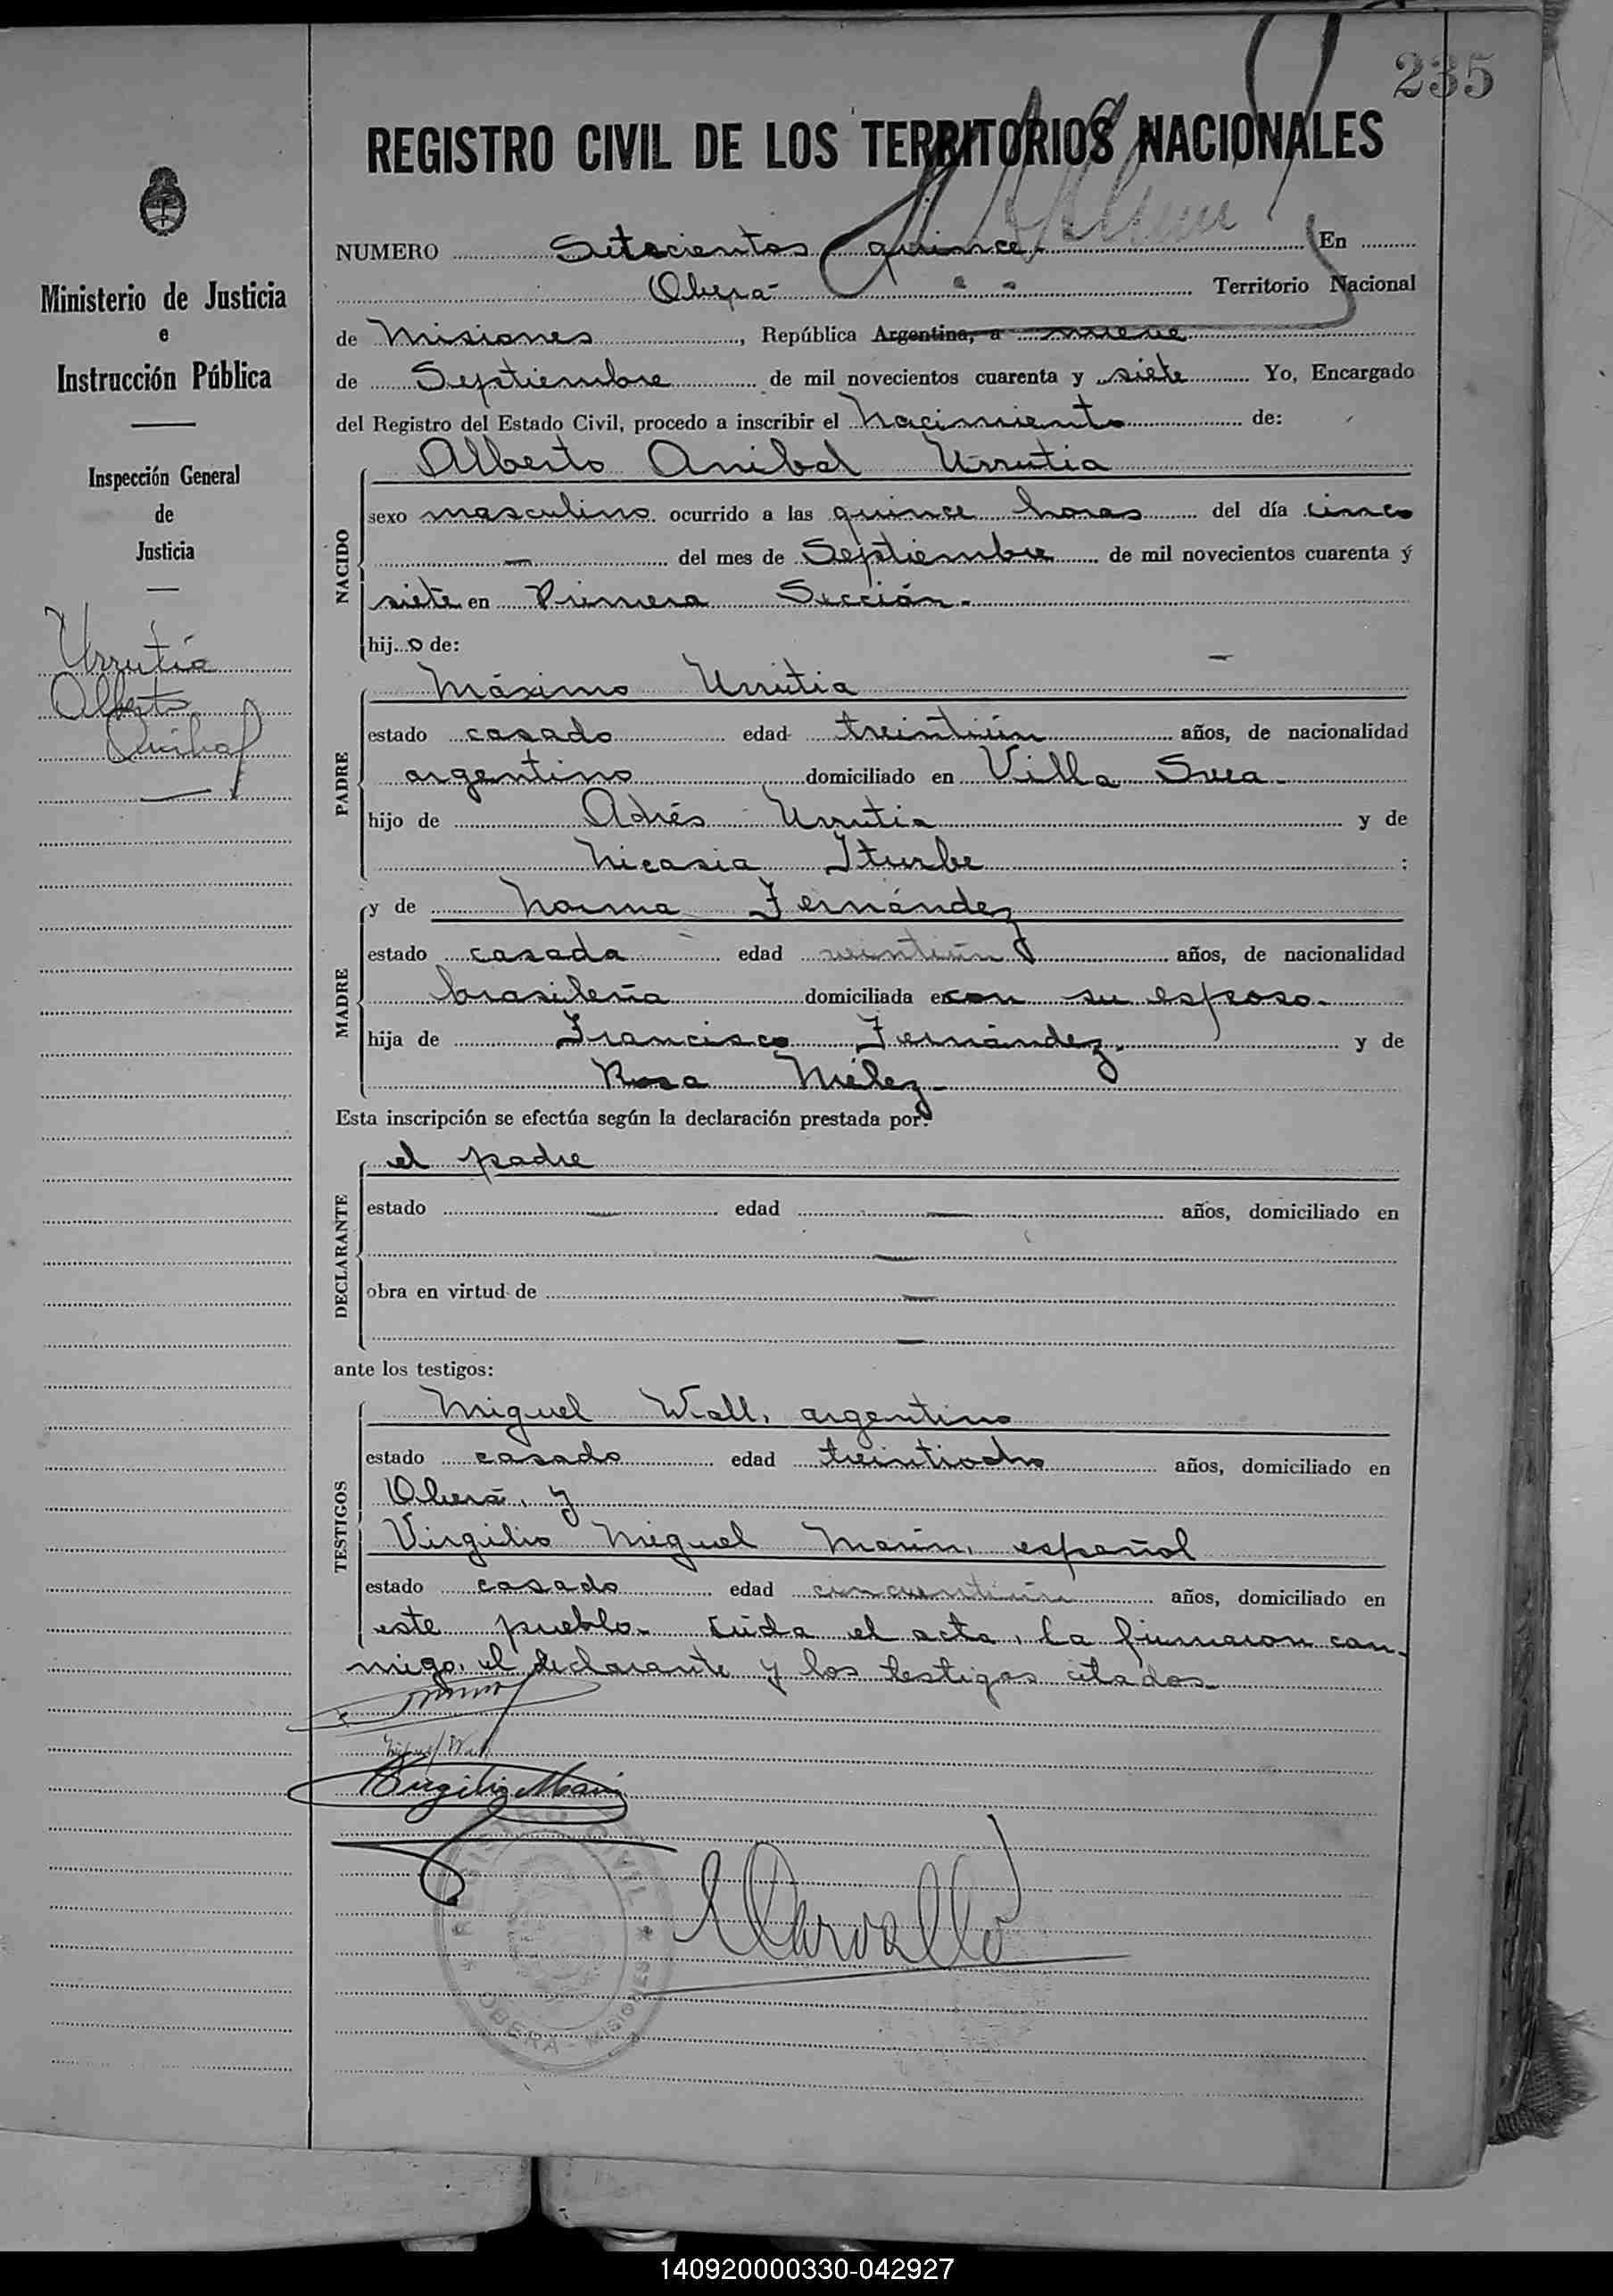 235
REGISTRO CIVIL DE LOS TERRITORIOS NACIONALES
NUMERO Setecientos quince.- En
Oberá Territorio Nacional
de Misiones, República Argentina, a nueve
de Septiembre de mil novecientos cuarenta y siete Yo, Encargado
del Registro del Estado Civil, procedo a inscribir el Nacimiento de:
Ministerio de Justicia
e
Instrucción Pública
Inspección General
de
Justicia
Urrutia
Alberto
Anibal
NACIDO
Alberto Anibal Urrutia
sexo masculino ocurrido a las quince horas del día cinco
del mes de Septiembre de mil novecientos cuarenta y
siete en Primera Sección.-
hijo de:
PADRE
Máximo Urrutia
estado casado edad treintiún años, de nacionalidad
argentino domiciliado en Villa Svea.
hijo de Adrés Urrutia y de
Nicasia Iturbe ;
MADRE
y de Norma Fernández
estado casada edad veintiún años, de nacionalidad
brasileña domiciliada en con su esposo.-
hija de Francisco Fernández. y de
Rosa
Esta inscripción se efectúa según la declaración prestada por:
DECLARANTE
el padre
estado — edad — años, domiciliado en
—
obra en virtud de —
—
ante los testigos:
TESTIGOS
Miguel Wall, argentino
estado casado edad treintiocho años, domiciliado en
Oberá, y
Virgilio Miguel Marin, español
estado casado edad cincuentiún años, domiciliado en
este pueblo.- Leída el acta, la firmaron con-
migo, el declarante y los testigos citados.-
Miguel Wall
Virgilio Marin
REGISTRO CIVIL
OBERA - MISIONES
140920000330-042927